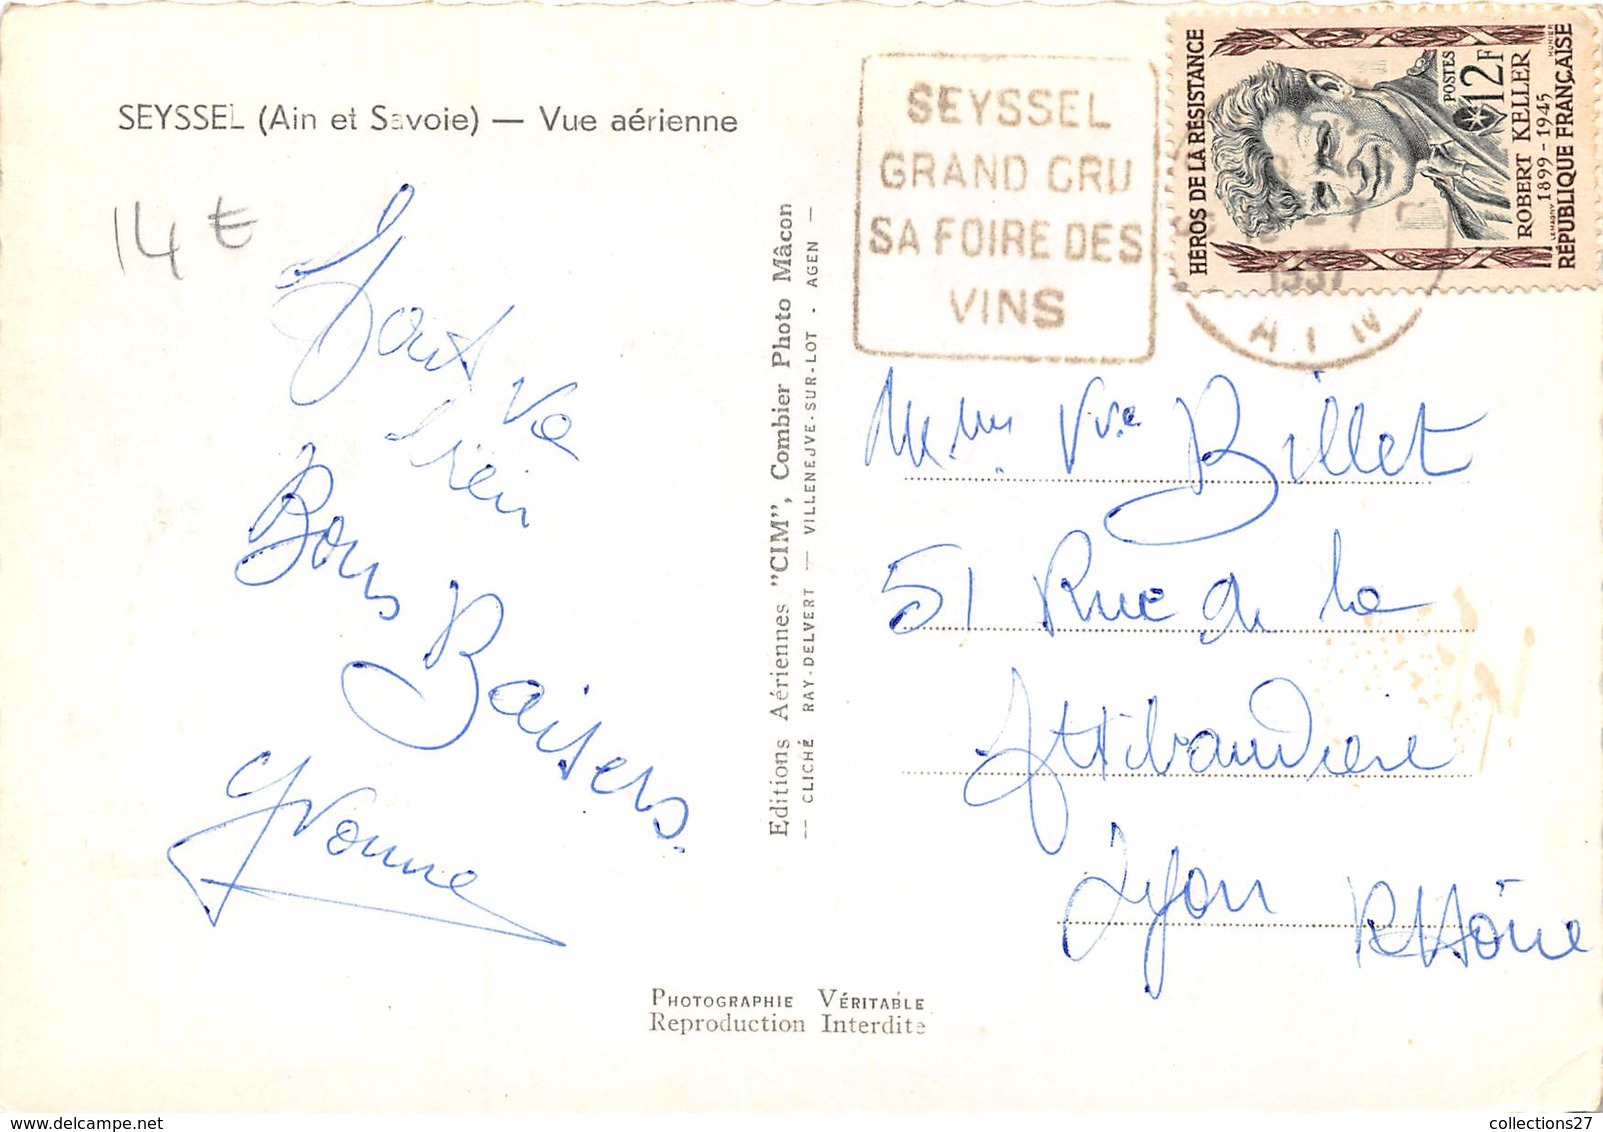 SEYSSEL (Ain et Savoie) — Vue aérienne
14 €
Tout va
bien
Bons Baisers
Yvonne
Editions Aériennes "CIM", Combier Photo Mâcon
— CLICHÉ RAY-DELVERT — VILLENEUVE-SUR-LOT - AGEN —
SEYSSEL
GRAND CRU
SA FOIRE DES
VINS
1957
AIN
HÉROS DE LA RÉSISTANCE
POSTES
12F
ROBERT KELLER
1899-1945
RÉPUBLIQUE FRANÇAISE
LEMAGNY
MUNIER
Vve Billet
51 Rue de la
Lyon Rhône
PHOTOGRAPHIE VÉRITABLE
Reproduction Interdite
collections27